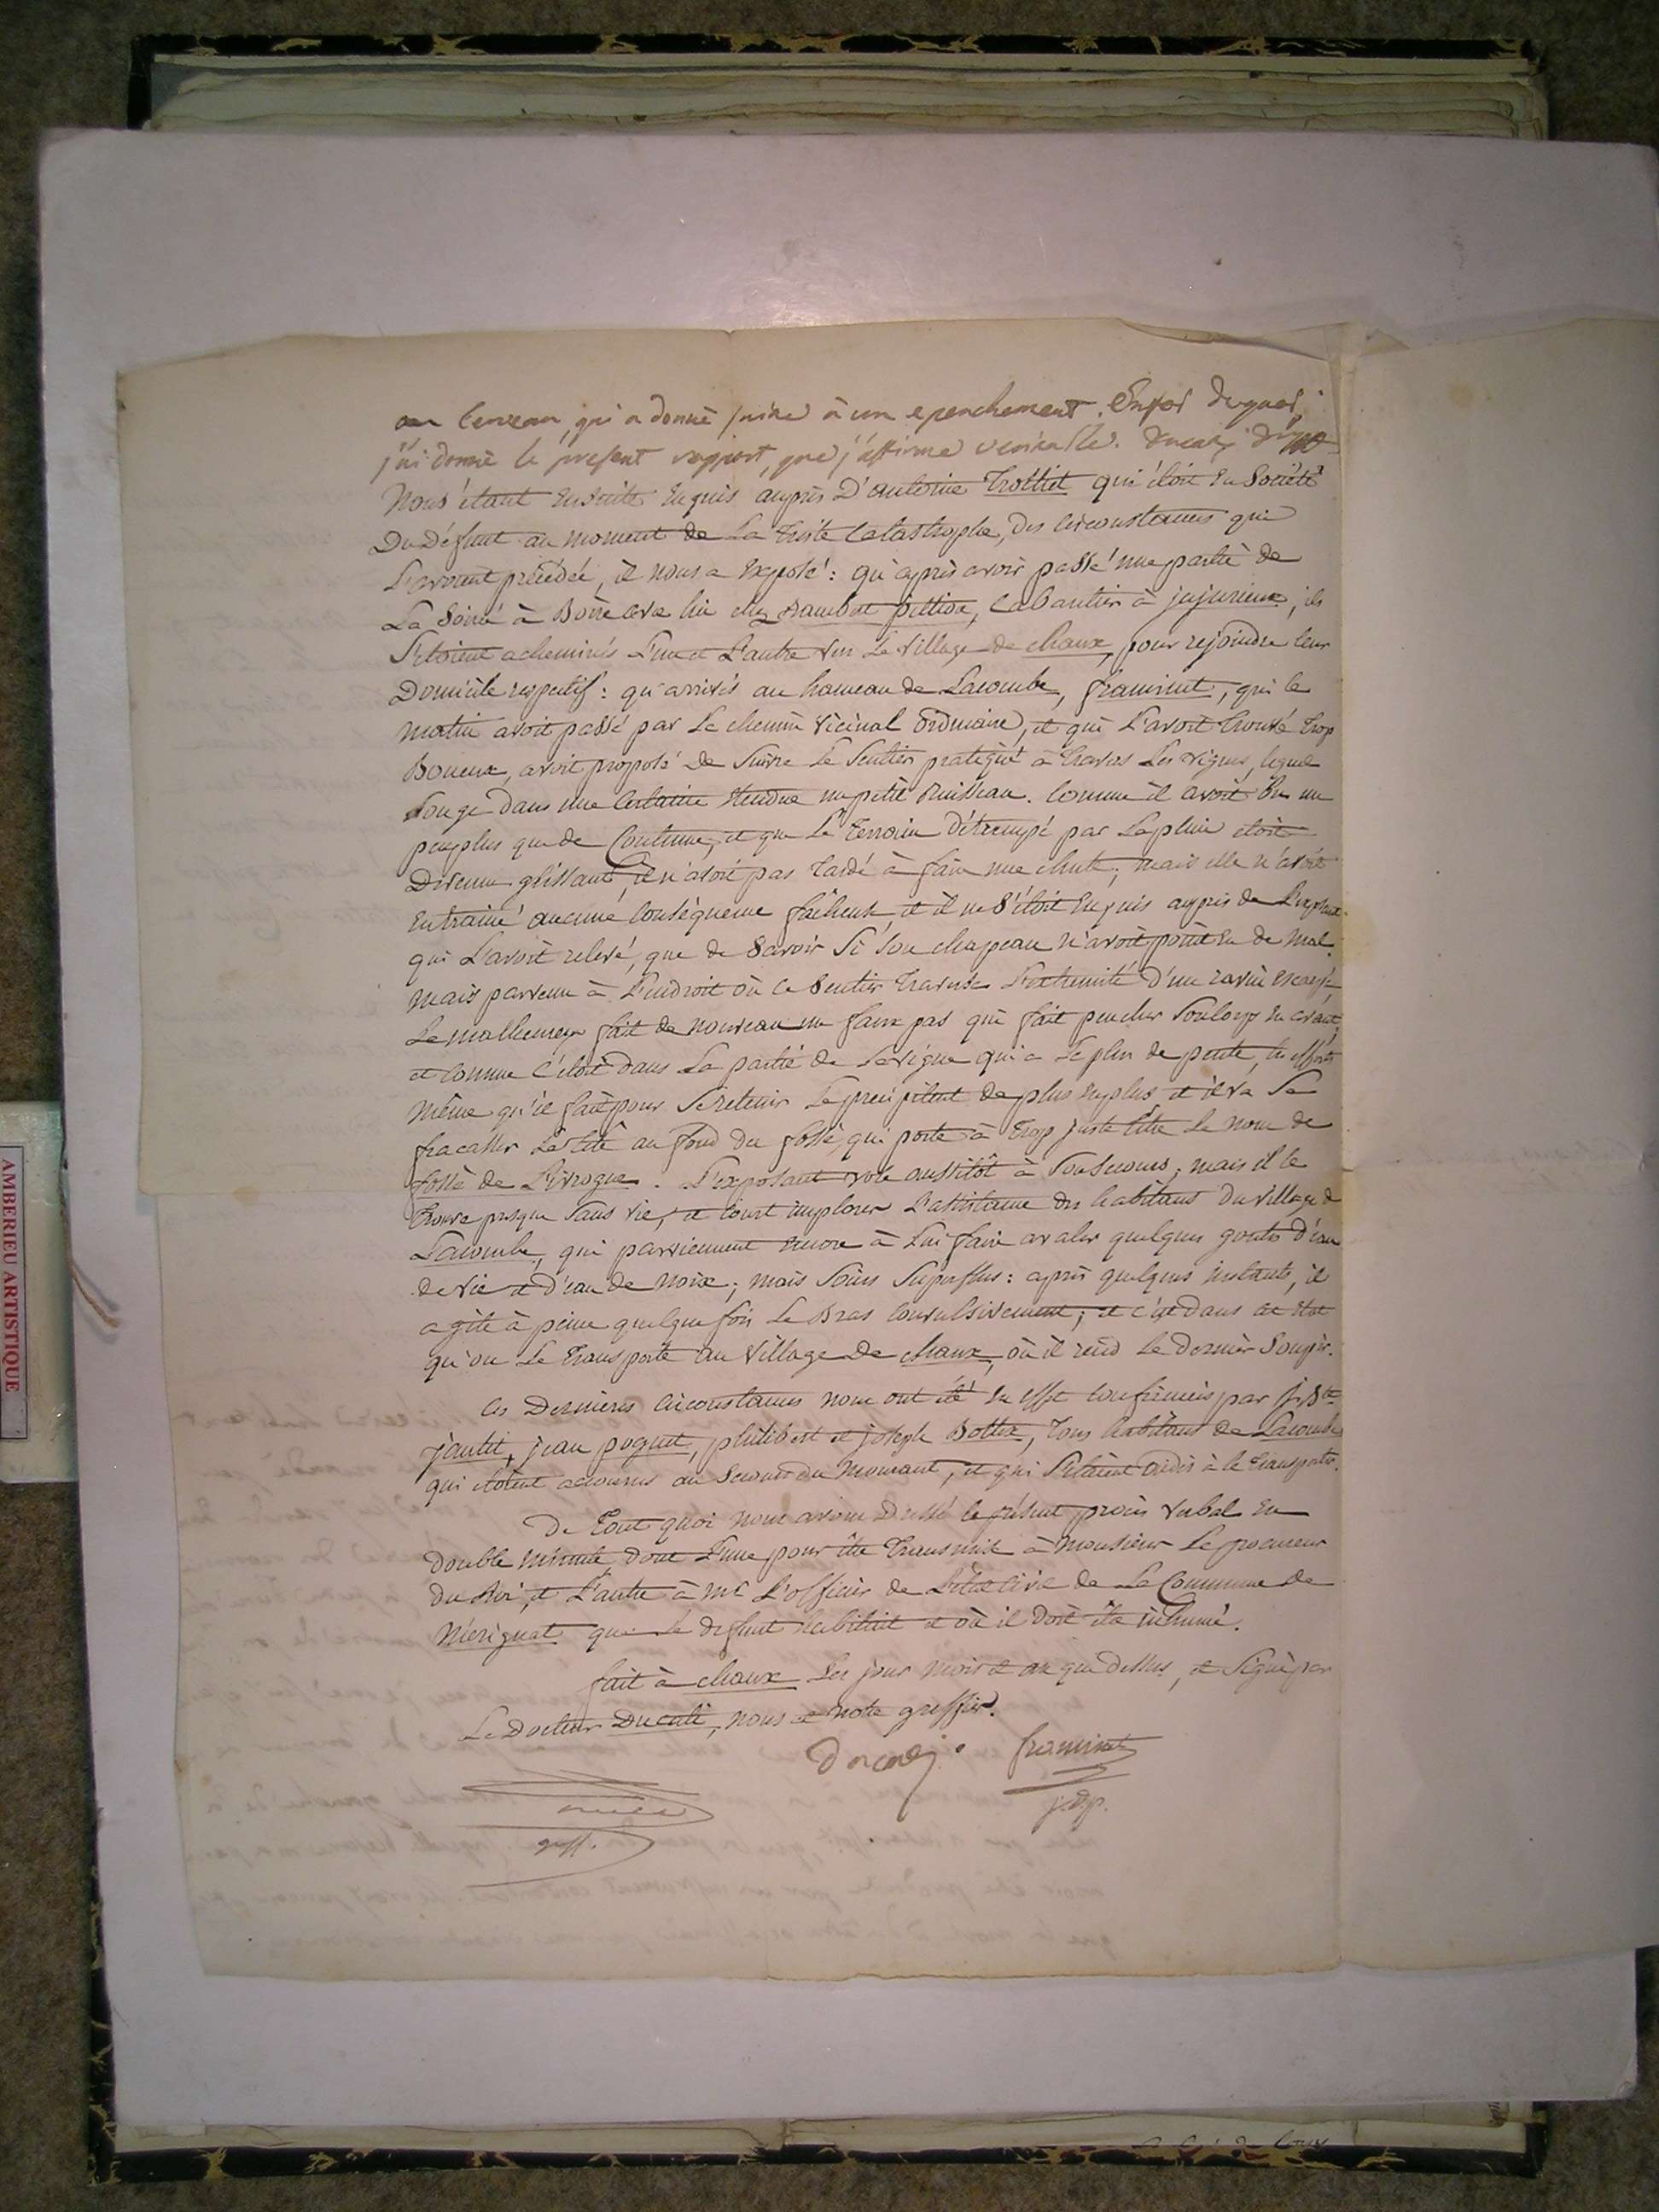 au Cerveau, qui a donné suite à un epenchement. Enfoi dequoi,
j'ai donné le présent rapport, que j'affirme véritable.
Nous étant ensuite enquis auprès D'antoine Trottiet qui étoit en Société
Du Défunt au moment de La triste Catastrophe, Des Circonstances qui
L'avoient précédée, il nous a Exposé : qu'après avoir passé une partie de
La Soiré à Boire avec lui chez Cabaretier à jujurieux, ils
S'etoient acheminés L'un et L'autre vers Le Village de chaux, pour rejoindre leur
Domicile respectif : qu'arrivés au hameau de Lacombe, framinet, qui le
matin avoit passé par Le chemin vicinal ordinaire, et qui L'avoit trouvé trop
Boueux, avoit proposé de Suivre Le Sentier pratiqué à travers Les vignes, lequel
Longe dans une Certaine étendue un petit Ruisseau. Comme il avoit Bu un
peu plus que de Coutume, et que Le terrain Détrempé par La pluie étoit
Devenu glissant, il n'avoit pas tardé à faire une chute ; mais elle n'avoit
Entrainé aucune Conséquence fâcheuse et il ne S'étoit Enquis auprès de L'exposant
qui L'avoit relevé, que de Savoir Si Son chapeau n'avoit point eu de mal.
mais parvenu à L'endroit où ce Sentier traverse L'extremité d'une ravin escarpé,
Le malheureux fait de nouveau un faux pas qui fait pencher Son Corps en avant,
et Comme C'étoit dans La partie de La vigne qui a Le plus de pente, les efforts
même qu'il fait pour Se retenir Le précipitent de plus en plus et il va Se
fracasser La tête au fond du fossé, qui porte à trop juste titre Le nom de
fossé de L'ivrogne. L'exposant vole aussitôt à Son Secours ; mais il le
trouve presque Sans vie, et Court implorer L'assistance des habitans Du village de
Lacombe, qui parviennent encore à Lui faire avaler quelques goutes D'eau
de vie et D'eau de noix ; mais Soins Superflus : après quelques instants, il
agite à peine quelque fois Le Bras Convulsivement ; et c'est dans cet état
qu'on Le transporte au Village De chaux, où il rend Le dernier Soupir.
Ces Dernières Circonstances nous ont été en effet Confirmées par
jantet, jean poguet, philibert et joseph Bottex, tous habitans de Lacombe
qui étoient accourus au Secours du Mourant, et qui S'etaient aidés à le transporter.
De Tout quoi nous avons Dressé le présent procès verbal en
Double minute, dont L'une pour être transmise à Monsieur Le procureur
Du Roi, et L'autre à Mr L'officier de L'état Civil de La Commune de
Mérignat que Le defunt habitait et où il doit être inhumé.
fait à chaux Les jour mois et an que dessus, et Signé par
Le Docteur Ducali, nous et notre greffier.
framinet
j.d.p.
greff.
AMBERIEU ARTISTIQUE